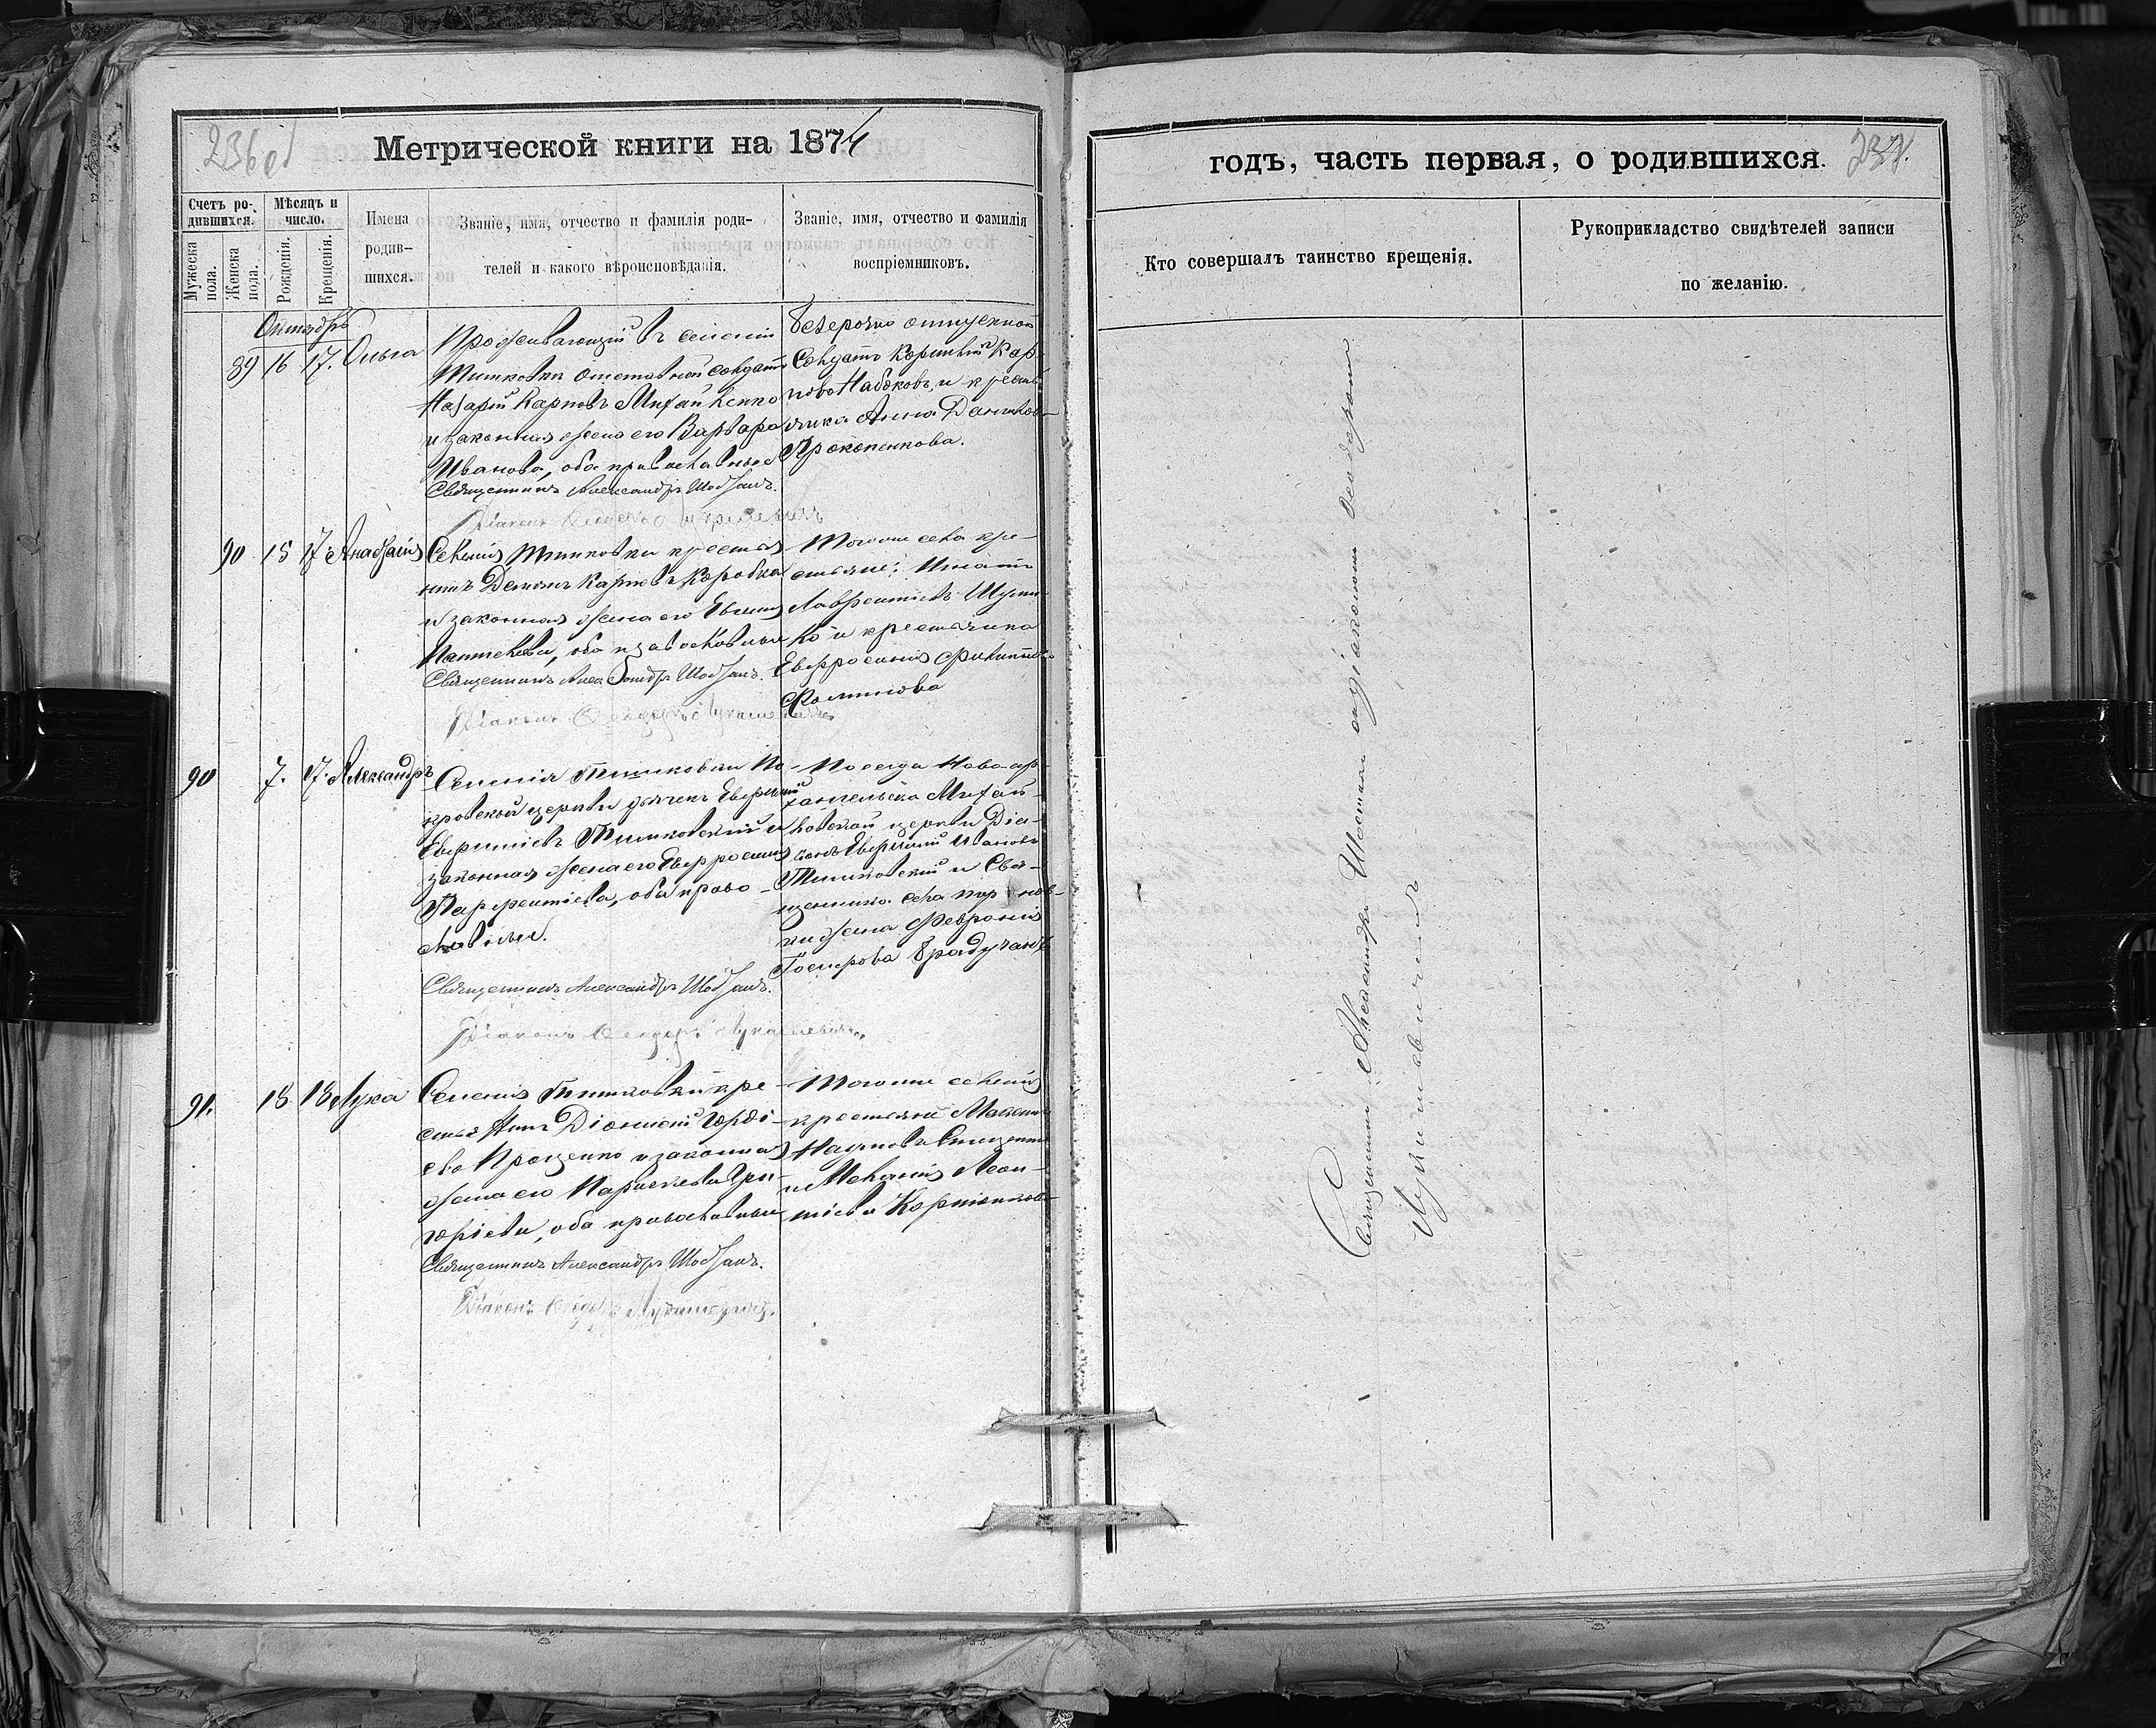 236 об
Метрической книги на 1874
Счетъ ро-
дившихся.
Мѣсяцъ и
число.
Мужеска
пола.
Женска
пола.
Рожденія.
Крещенія.
Имена
родив-
шихся.
Званіе, имя, отчество и фамилія роди-
телей и какого вѣроисповѣданія.
Званіе, имя, отчество и фамилія
воспріемниковъ.
Октябрь
89 16 17. Ольга
Проживающій въ селеніи
Тишковки отставной солдатъ
Назарій Карповъ Михайленко
и законная жена его Варвара
Иванова, оба православные
Священникъ Александръ
Діаконъ Лукашевичъ
Безсрочно отпускной
Солдатъ Корнилій Кар-
повъ Набоковъ, и крестья-
нка Анна Данилова
Прокопенкова.
90 15 17
Селенія Тишковки крестья
нинъ Демьянъ Карповъ Коробка
и законная жена его Евгенія
Пантелѣева, оба православные
Священникъ Александръ
Діаконъ Феодоръ Лукашевичъ
Тогоже села кре-
стьяне: Игнатъ
Лаврентіевъ
ко и крестьянка
Евфросинія Филиппова
90 7. 17. Александръ
Селенія Тишковки По-
кровской церкви дьячекъ Евфимій
Евфиміевъ Тишковскій и
законная жена его Евфросинія
Терентіева, оба право-
славные.
Священникъ Александръ
Діаконъ Феодоръ Лукашевичъ
Посада Новоар-
хангельска Михай-
ловской церкви Діа-
конъ Евфимій Ивановъ
Тишковскій и Свя-
щенника села
ки жена Февронія
91. 18 18 Лука
Селенія Тишковки кре-
стьянинъ Діонисій Горді-
евъ Проценко и законная
жена его Параскева Гри-
горіева, оба православные
Священникъ Александръ
Діаконъ Феодоръ Лукашевичъ
Тогоже селенія
крестьяне Максимъ
Наумовъ
и Меланія Леон-
тіева
годъ, часть первая, о родившихся.
237.
Кто совершалъ таинство крещенія.
Рукоприкладство свидѣтелей записи
по желанію.
Священникъ Александръ съ діакономъ Феодоромъ
Лукашевичемъ